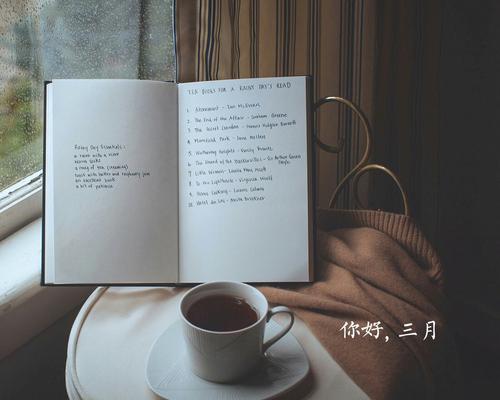 Rainy Day Essentials:
a room with a view
warm socks
a mug of tea (steaming)
toast with butter and raspberry jam
an excellent book
a bit of patience
TEN BOOKS FOR A RAINY DAY'S READ
1. Atonement - Ian McEwan
2. The End of the Affair - Graham Greene
3. The Secret Garden - Frances Hodgson Burnett
4. Mansfield Park - Jane Austen
5. Wuthering Heights - Emily Brontë
6. The Hound of the Baskervilles - Sir Arthur Conan
Doyle
7. Little Women - Louisa May Alcott
8. To the Lighthouse - Virginia Woolf
9. Home Cooking - Laurie Colwin
10. Hotel du Lac - Anita Brookner
你好, 三月